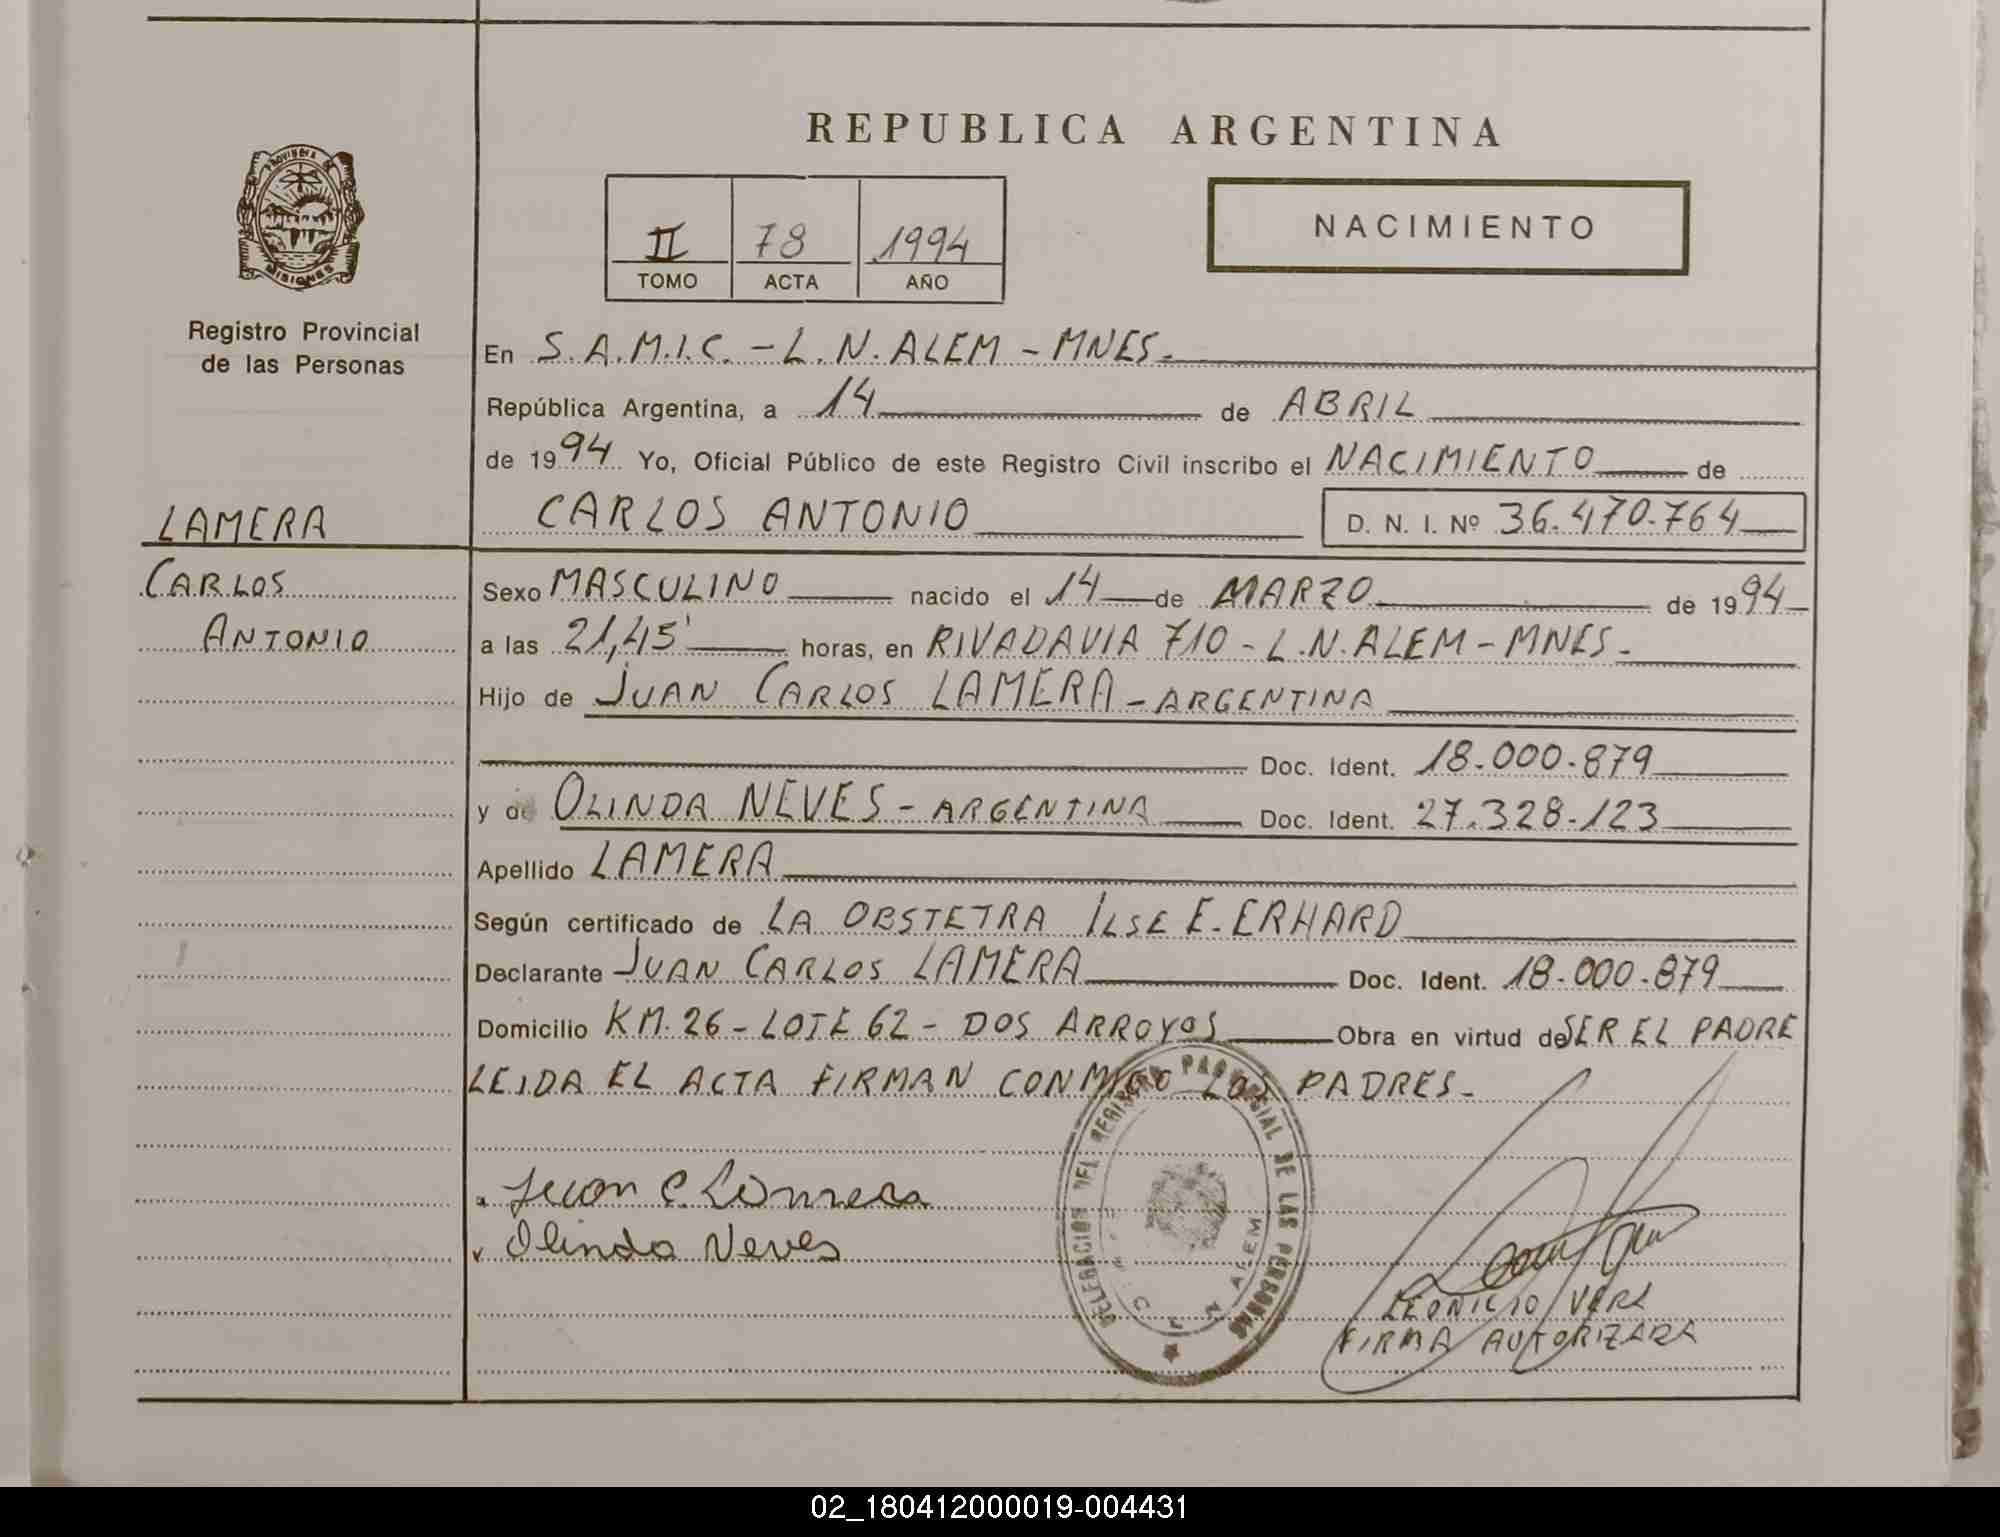 REPUBLICA ARGENTINA
PROVINCIA DE MISIONES
Registro Provincial
de las Personas
II 78 1994
TOMO ACTA AÑO
NACIMIENTO
En S.A.M.I.C. - L.N. ALEM - MNES.
República Argentina, a 14 de ABRIL
de 1994 Yo, Oficial Público de este Registro Civil inscribo el NACIMIENTO de
CARLOS ANTONIO D. N. I. Nº 36.470.764
LAMERA
CARLOS
ANTONIO
Sexo MASCULINO nacido el 14 de MARZO de 1994
a las 21,45' horas, en RIVADAVIA 710 - L.N. ALEM - MNES.
Hijo de JUAN CARLOS LAMERA - ARGENTINA
Doc. Ident. 18.000.879
y de OLINDA NEVES - ARGENTINA Doc. Ident. 27.328.123
Apellido LAMERA
Según certificado de LA OBSTETRA ILSE E. ERHARD
Declarante JUAN CARLOS LAMERA Doc. Ident. 18.000.879
Domicilio KM. 26 - LOTE 62 - DOS ARROYOS Obra en virtud de SER EL PADRE
LEIDA EL ACTA FIRMAN CONMIGO LOS PADRES.
Juan C. Lamera
Olinda Neves
DELEGACION DEL REGISTRO PROVINCIAL DE LAS PERSONAS
L N ALEM
LEONICIO VERA
FIRMA AUTORIZADA
02_180412000019-004431